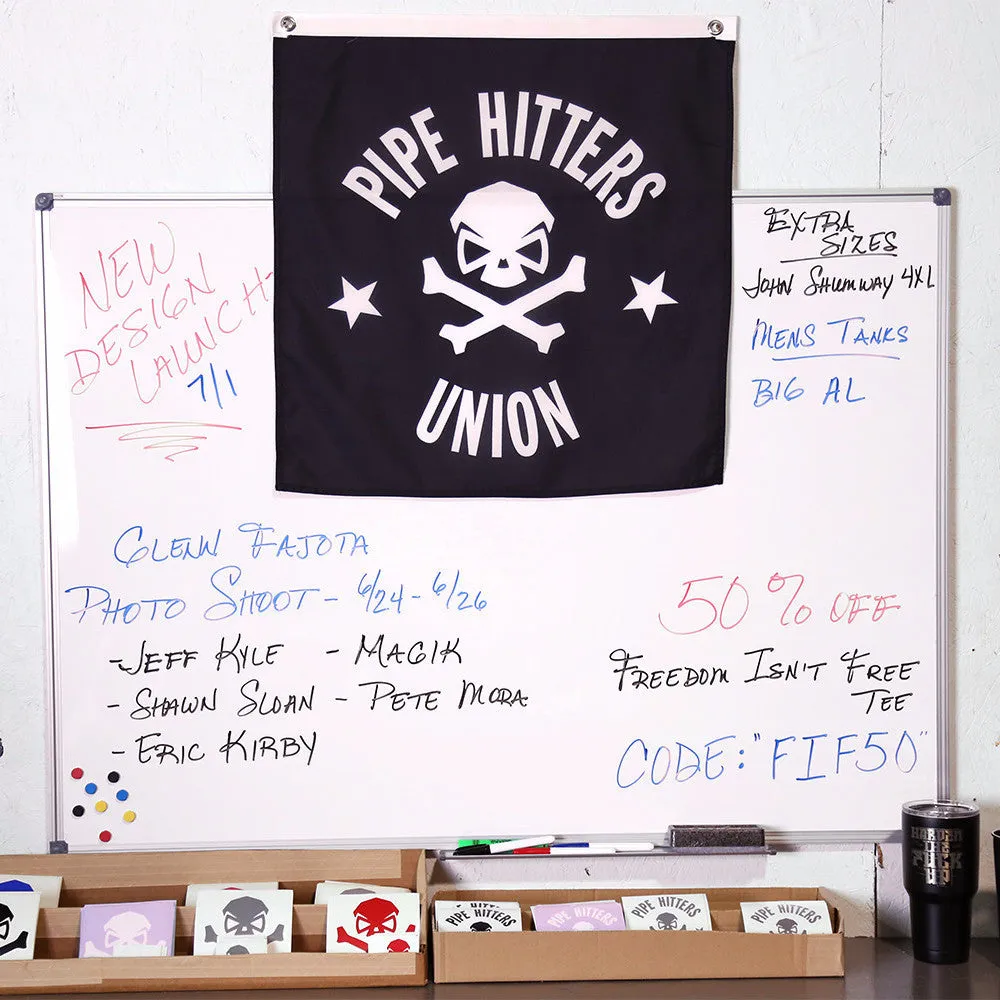 PIPE HITTERS
UNION
NEW
DESIGN
LAUNCH-
7/1
EXTRA
SIZES
JOHN SHUMWAY 4XL
MENS TANKS
BIG AL
GLENN FAJOTA
PHOTO SHOOT - 6/24 - 6/26
- JEFF KYLE - MAGIK
- SHAWN SLOAN - PETE MORA
- ERIC KIRBY
50% OFF
FREEDOM ISN'T FREE
TEE
CODE: "FIF50"
HARDEN
THE
FUCK
UP
PIPE HITTERS
PIPE HITTERS
PIPE HITTERS
PIPE HITTERS